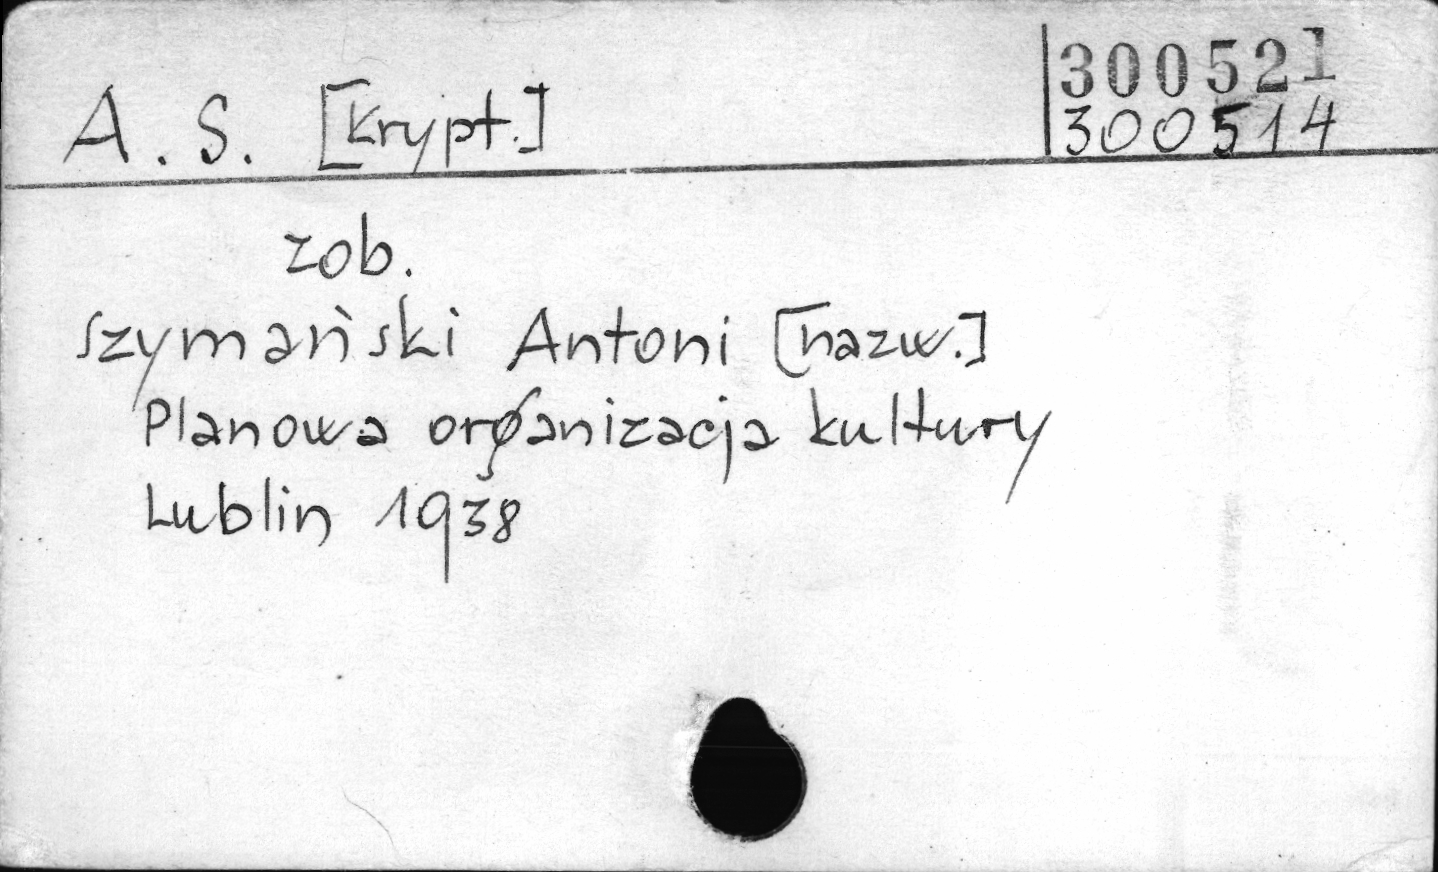 300521
A. S. [Krypt.] 300514
zob.
Szymański Antoni [nazw.]
Planowa organizacja kultury
Lublin 1938